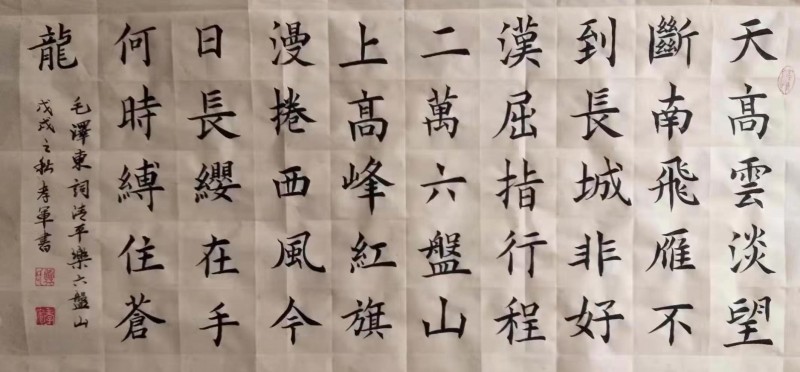 天高雲淡望
斷南飛雁不
到長城非好
漢屈指行程
二萬六盤山
上高峰紅旗
漫捲西風今
日長纓在手
何時縛住蒼
龍
毛澤東詞清平樂六盤山
戊戌之秋孝軍書